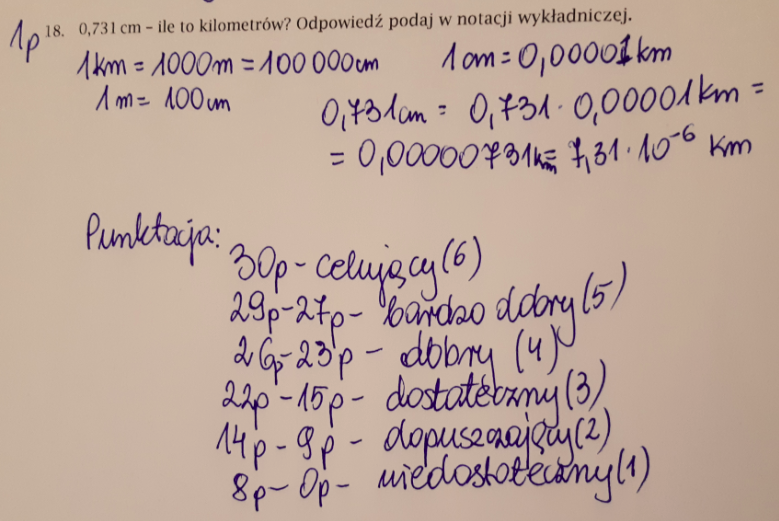 1p 18. 0,731 cm – ile to kilometrów? Odpowiedź podaj w notacji wykładniczej.
1km = 1000m = 100 000cm 1cm = 0,00001km
1m = 100cm 0,731cm = 0,731 · 0,00001km =
= 0,00000731km = 7,31 · 10⁻⁶ km
Punktacja:
30p – celujący (6)
29p – 27p – bardzo dobry (5)
26p – 23p – dobry (4)
22p – 15p – dostateczny (3)
14p – 9p – dopuszczający (2)
8p – 0p – niedostateczny (1)